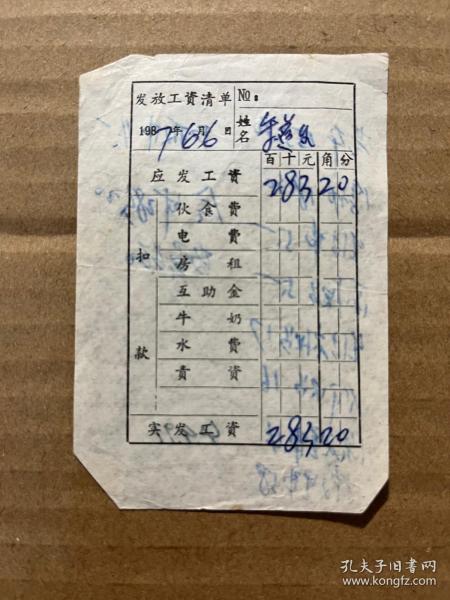 发放工资清单 №:
1987年6月6日 姓名
百十元角分
应发工资 283 20
扣款
伙食费
电费
房租
互助金
牛奶
水费
责资
实发工资 283 20
孔夫子旧书网
www.kongfz.com